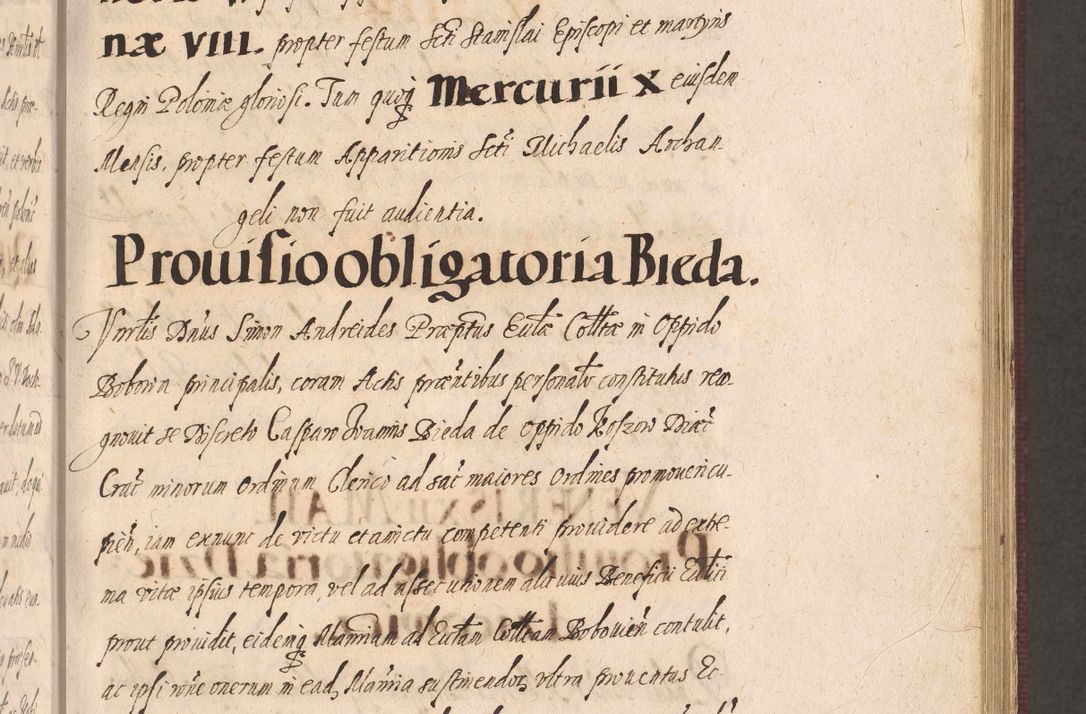 næ VIII. propter festum Scti Stanislai Episcopi et martyris
Regni Poloniæ gloriosi. Tum quoq Mercurii X eiusdem
Mensis, propter festum Apparitionis Scti Michaelis Archan
geli non fuit audientia.
Prouisio obligatoria Bieda.
Vnrlis Dnus Simon Andreides Præptus Eulæ Colltæ in Oppido
Boboua principalis, coram Actis præntibus personalr constitutus reco-
gnouit se Discreto Casparo Joannis Bieda de oppido Koszow Diæc
Crac minorum ordinum Clerico ad sac maiores ordines promoueri cu-
pien, iam exnunc de victu et amictu competenti prouidere ad extre-
ma vitæ ipsius tempora, vel ad assecutionem alicuius Beneficii Eccltici
prout prouidit, eidemq Mansiam ad Eccltam Colltam Bobouien contulit,
ac ipsi rone onerum in ead Mansia sustinendor, vltra prouentus Ec-